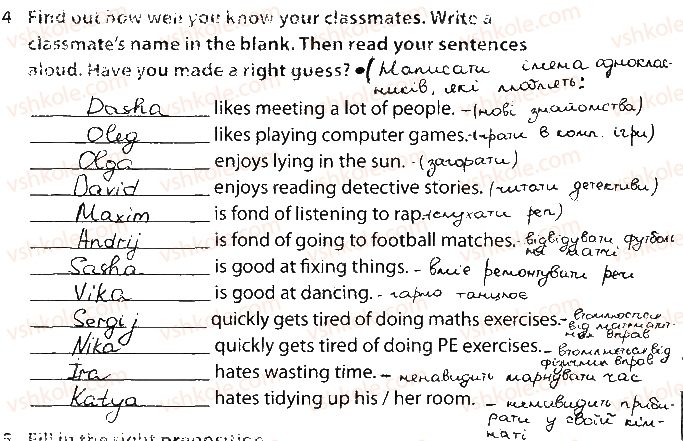 4 Find out how well you know your classmates. Write a
classmate's name in the blank. Then read your sentences
aloud. Have you made a right guess? • (Написати імена однокла-
сників, які люблять:
Dasha likes meeting a lot of people. - (нові знайомства)
Oleg likes playing computer games. - (грати в комп. ігри)
Olga enjoys lying in the sun. - (загорати)
David enjoys reading detective stories. (читати детективи)
Maxim is fond of listening to rap. (слухати реп)
Andrij is fond of going to football matches. - відвідувати футболь
ні матчі
Sasha is good at fixing things. - вміє ремонтувати речі
Vika is good at dancing. - гарно танцює
Sergij quickly gets tired of doing maths exercises. - втомлюється
від математич-
них вправ
Nika quickly gets tired of doing PE exercises. - втомлюється від
фізичних вправ
Ira hates wasting time. - ненавидить марнувати час
Katya hates tidying up his / her room. - ненавидить приби-
рати у своїй кім-
наті
5 Fill in the right preposition
vshkole.com